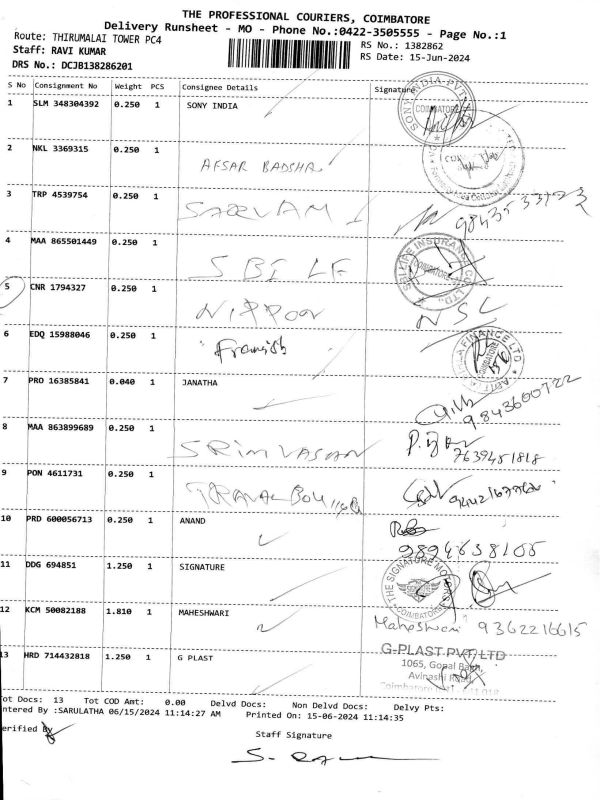 THE PROFESSIONAL COURIERS, COIMBATORE
Delivery Runsheet - MO - Phone No.:0422-3505555 - Page No.:1
Route: THIRUMALAI TOWER PC4
RS No.: 1382862
Staff: RAVI KUMAR
RS Date: 15-Jun-2024
DRS No.: DCJB138286201
S No Consignment No Weight PCS Consignee Details Signature
1 SLM 348304392 0.250 1 SONY INDIA
COIMBATORE
2 NKL 3369315 0.250 1 AFSAR BADSHA
3 TRP 4539754 0.250 1 SARVAM
4 MAA 865501449 0.250 1 SBI LF
COIMBATORE
5 CNR 1794327 0.250 1 NIPPON NSC
6 EDQ 15988046 0.250 1
FINANCE LTD
COIMBATORE
7 PRO 16385841 0.040 1 JANATHA 9843600722
8 MAA 863899689 0.250 1 SRINIVASAN 7639451818
9 PON 4611731 0.250 1
10 PRD 600056713 0.250 1 ANAND
9894638108
11 DDG 694851 1.250 1 SIGNATURE
THE SIGNATURE MOTORS
COIMBATORE
12 KCM 50082188 1.810 1 MAHESHWARI Maheshwari 9362216615
13 HRD 714432818 1.250 1 G PLAST
G-PLAST PVT LTD
1065, Gopal Bagh,
Avinashi Road,
Tot Docs: 13 Tot COD Amt: 0.00 Delvd Docs: Non Delvd Docs: Delvy Pts:
ntered By :SARULATHA 06/15/2024 11:14:27 AM Printed On: 15-06-2024 11:14:35
erified By
Staff Signature